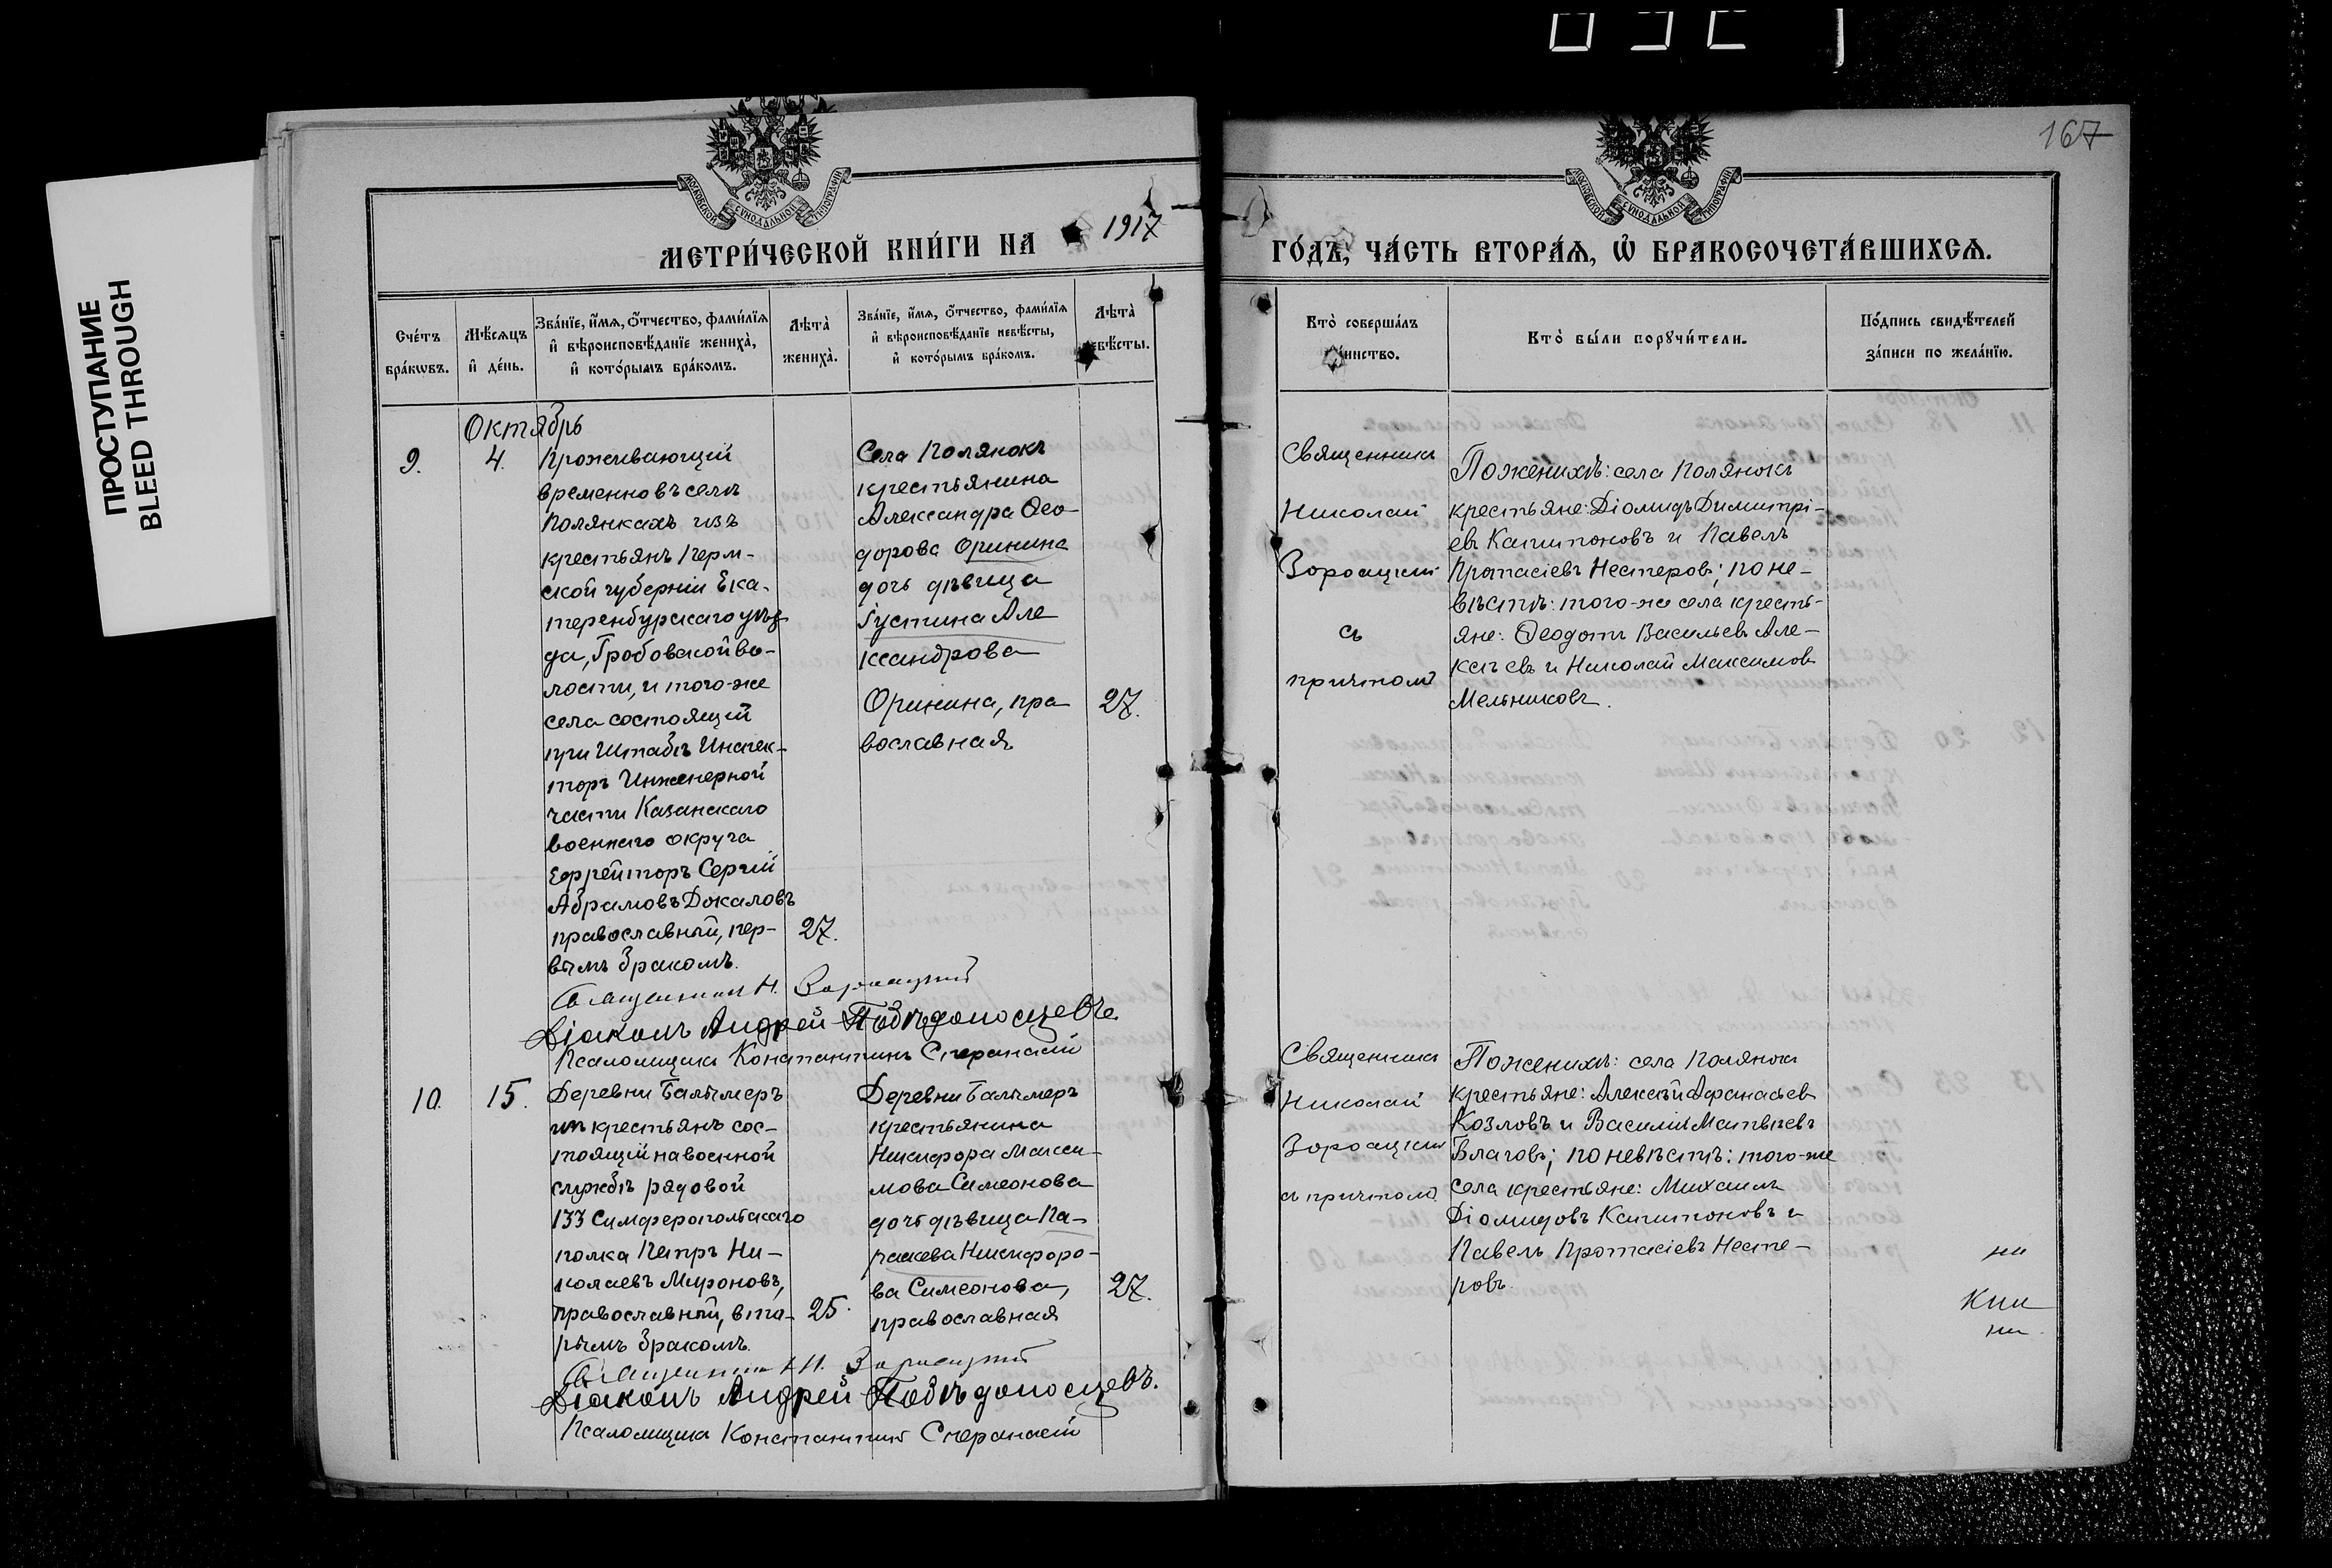 ПРОСТУПАНИЕ
BLEED THROUGH
167
МОСКОВСКОЙ СѴНОДАЛЬНОЙ ТИПОГРАФІИ
МОСКОВСКОЙ СѴНОДАЛЬНОЙ ТИПОГРАФІИ
МЕТРИ́ЧЕСКОЙ КНИ́ГИ НА 1917
ГО́ДЪ, ЧА́СТЬ ВТОРА́Ѧ, Ѡ҆ БРАКОСОЧЕТА́ВШИХСѦ.
Сче́тъ
бра́кѡвъ.
Мѣ́сѧцъ
и҆ де́нь.
Зва́нїе, и҆́мѧ, ѻ҆́тчество, фами́лїѧ
и҆ вѣроисповѣ́данїе жениха̀,
и҆ кото́рымъ бра́комъ.
Лѣта̀
жениха̀.
Зва́нїе, и҆́мѧ, ѻ҆́тчество, фами́лїѧ
и҆ вѣроисповѣ́данїе невѣ́сты,
и҆ кото́рымъ бра́комъ.
Лѣта̀
Кто̀ соверша́лъ
Кто̀ бы́ли порꙋчи́тели.
По́дпись свидѣ́телей
за́писи по жела́нїю.
Октябрь
9.
4.
Проживающій
временно въ селѣ
Полянкахъ изъ
крестьянъ Перм-
ской губерніи Ека-
теренбурскаго уѣз
да, Гробовской во-
лости, и того-же
села состоящій
при Штабѣ Инспек-
торъ Инженерной
части Казанскаго
военнаго округа
Ефрейторъ Сергій
Абрамовъ Докаловъ
православный, пер-
вымъ бракомъ.
27.
Села Полянокъ
крестьянина
Александра Ѳео-
дорова Оринина
дочь дѣвица
Іустина Але
ксандрова
Оринина, пра
вославная
27.
Священникъ
Николай
Зороацкій
съ
причтомъ
По женихѣ: села Полянокъ
крестьяне: Діомидъ Димитрі-
евъ Капитоновъ и Павелъ
Протасіевъ Нестеровъ; по не-
вѣстѣ: того-же села кресть-
яне: Ѳеодотъ Васильевъ Але-
ксѣевъ и Николай Максимовъ
Мельниковъ.
Священникъ Н. Зороацкій
Діаконъ Андрей Побѣдоносцевъ.
Псаломщикъ Константинъ Сперанскій
10.
15.
Деревни Балымеръ
изъ крестьянъ сос-
тоящій на военной
службѣ рядовой
133 Симферопольскаго
полка Петръ Ни-
колаевъ Мироновъ,
православный, вто-
рымъ бракомъ.
25.
Деревни Балымеръ
крестьянина
Никифора Макси-
мова Симеонова
дочь дѣвица Па-
раскева Никифоро-
ва Симеонова,
православная
27.
Священникъ
Николай
Зороацкій
съ причтомъ
По женихѣ: села Полянокъ
крестьяне: Алексѣй Афанасьевъ
Козловъ и Василій Матвѣевъ
Благовъ; по невѣстѣ: того-же
села крестьяне: Михаилъ
Діомидовъ Капитоновъ и
Павелъ Протасіевъ Несте-
ровъ.
Священникъ Н. Зороацкій
Діаконъ Андрей Побѣдоносцевъ.
Псаломщикъ Константинъ Сперанскій